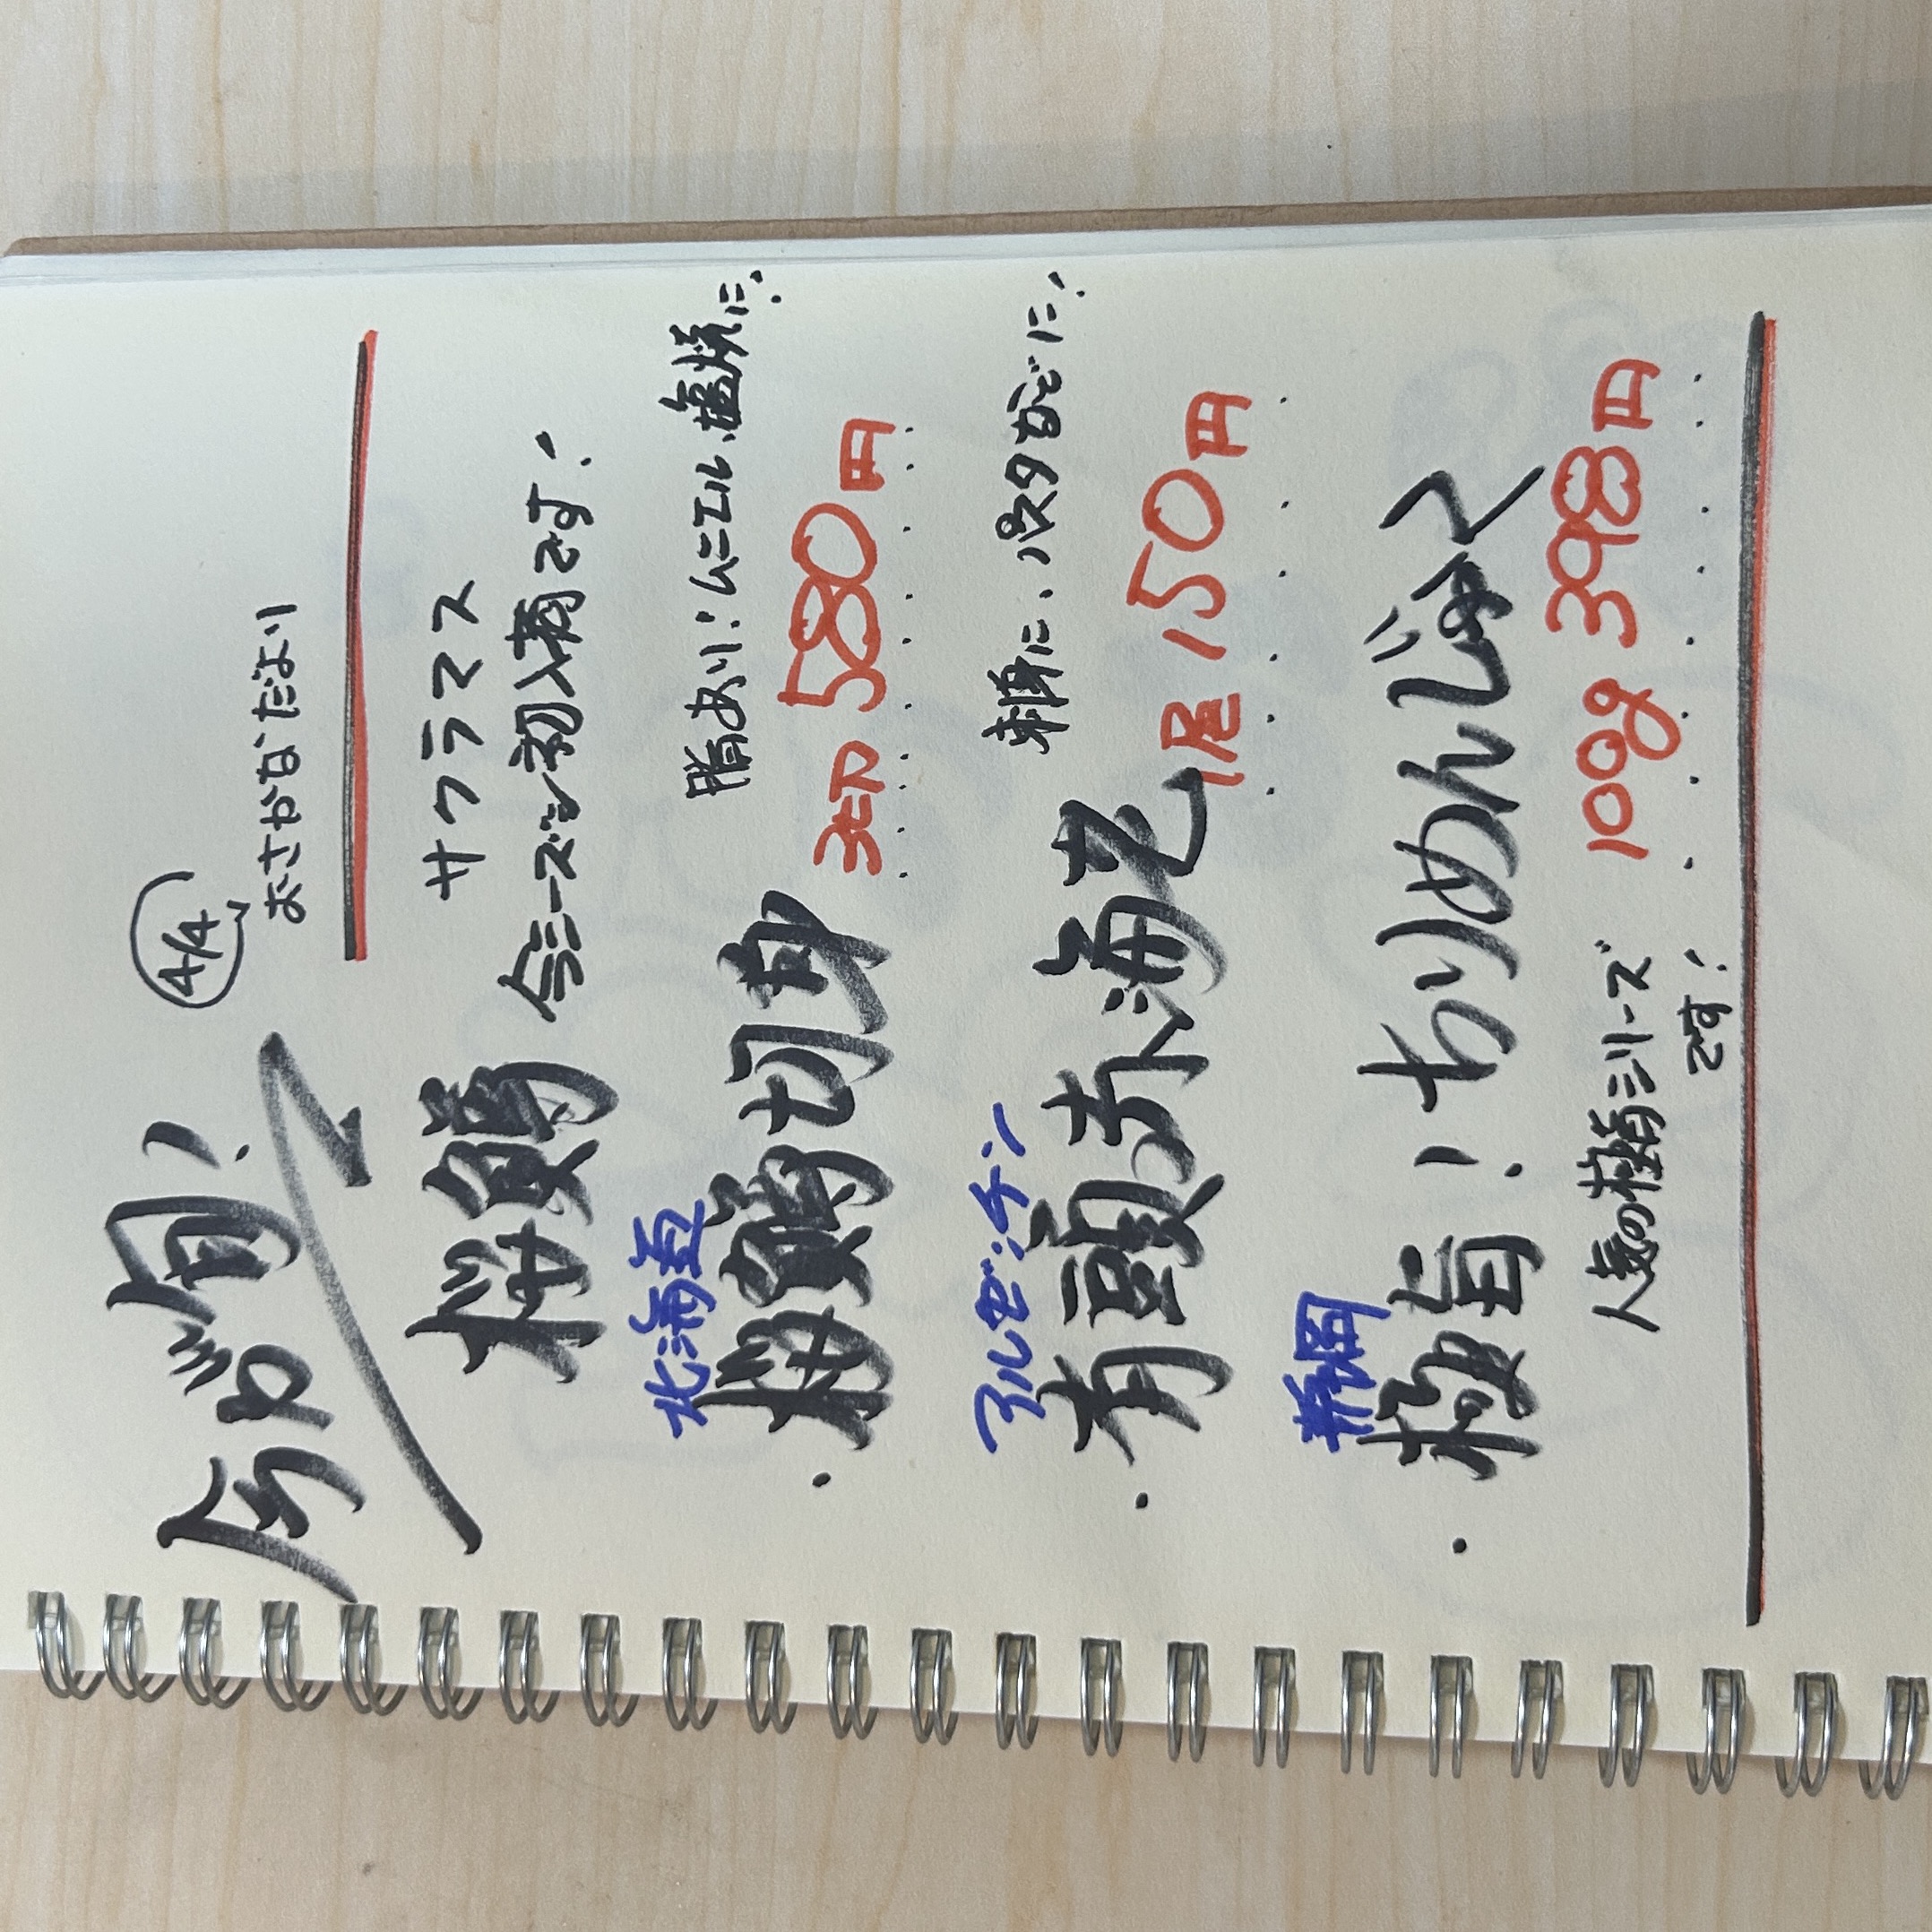 今が旬!
4/4
おさかなだより
桜鱒
サクラマス
今シーズン初入荷です!
北海道
・桜鱒切身
脂あり!ムニエル、塩焼に!
3切580円
アルゼンチン
・有頭赤海老
刺身に、パスタなどに!
1尾150円
静岡
・極旨!ちりめんじゃく
人気の極旨シリーズ
です!
100g 398円